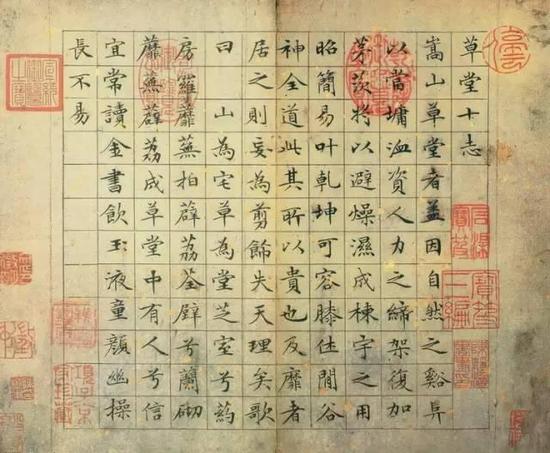 草堂十志
嵩山草堂者盖因自然之谿阜
以當墉洫資人力之締架復加
茅茨将以避燥濕成棟宇之用
昭簡易叶乾坤可容膝休閒谷
神全道此其所以貴也及靡者
居之則妄為剪餙失天理矣歌
曰 山為宅草為堂芝室兮葯
房羅蘼蕪拍薜荔荃壁兮蘭砌
蘼蕪薜荔成草堂中有人兮信
宜常讀金書飲玉液童顔幽操
長不易